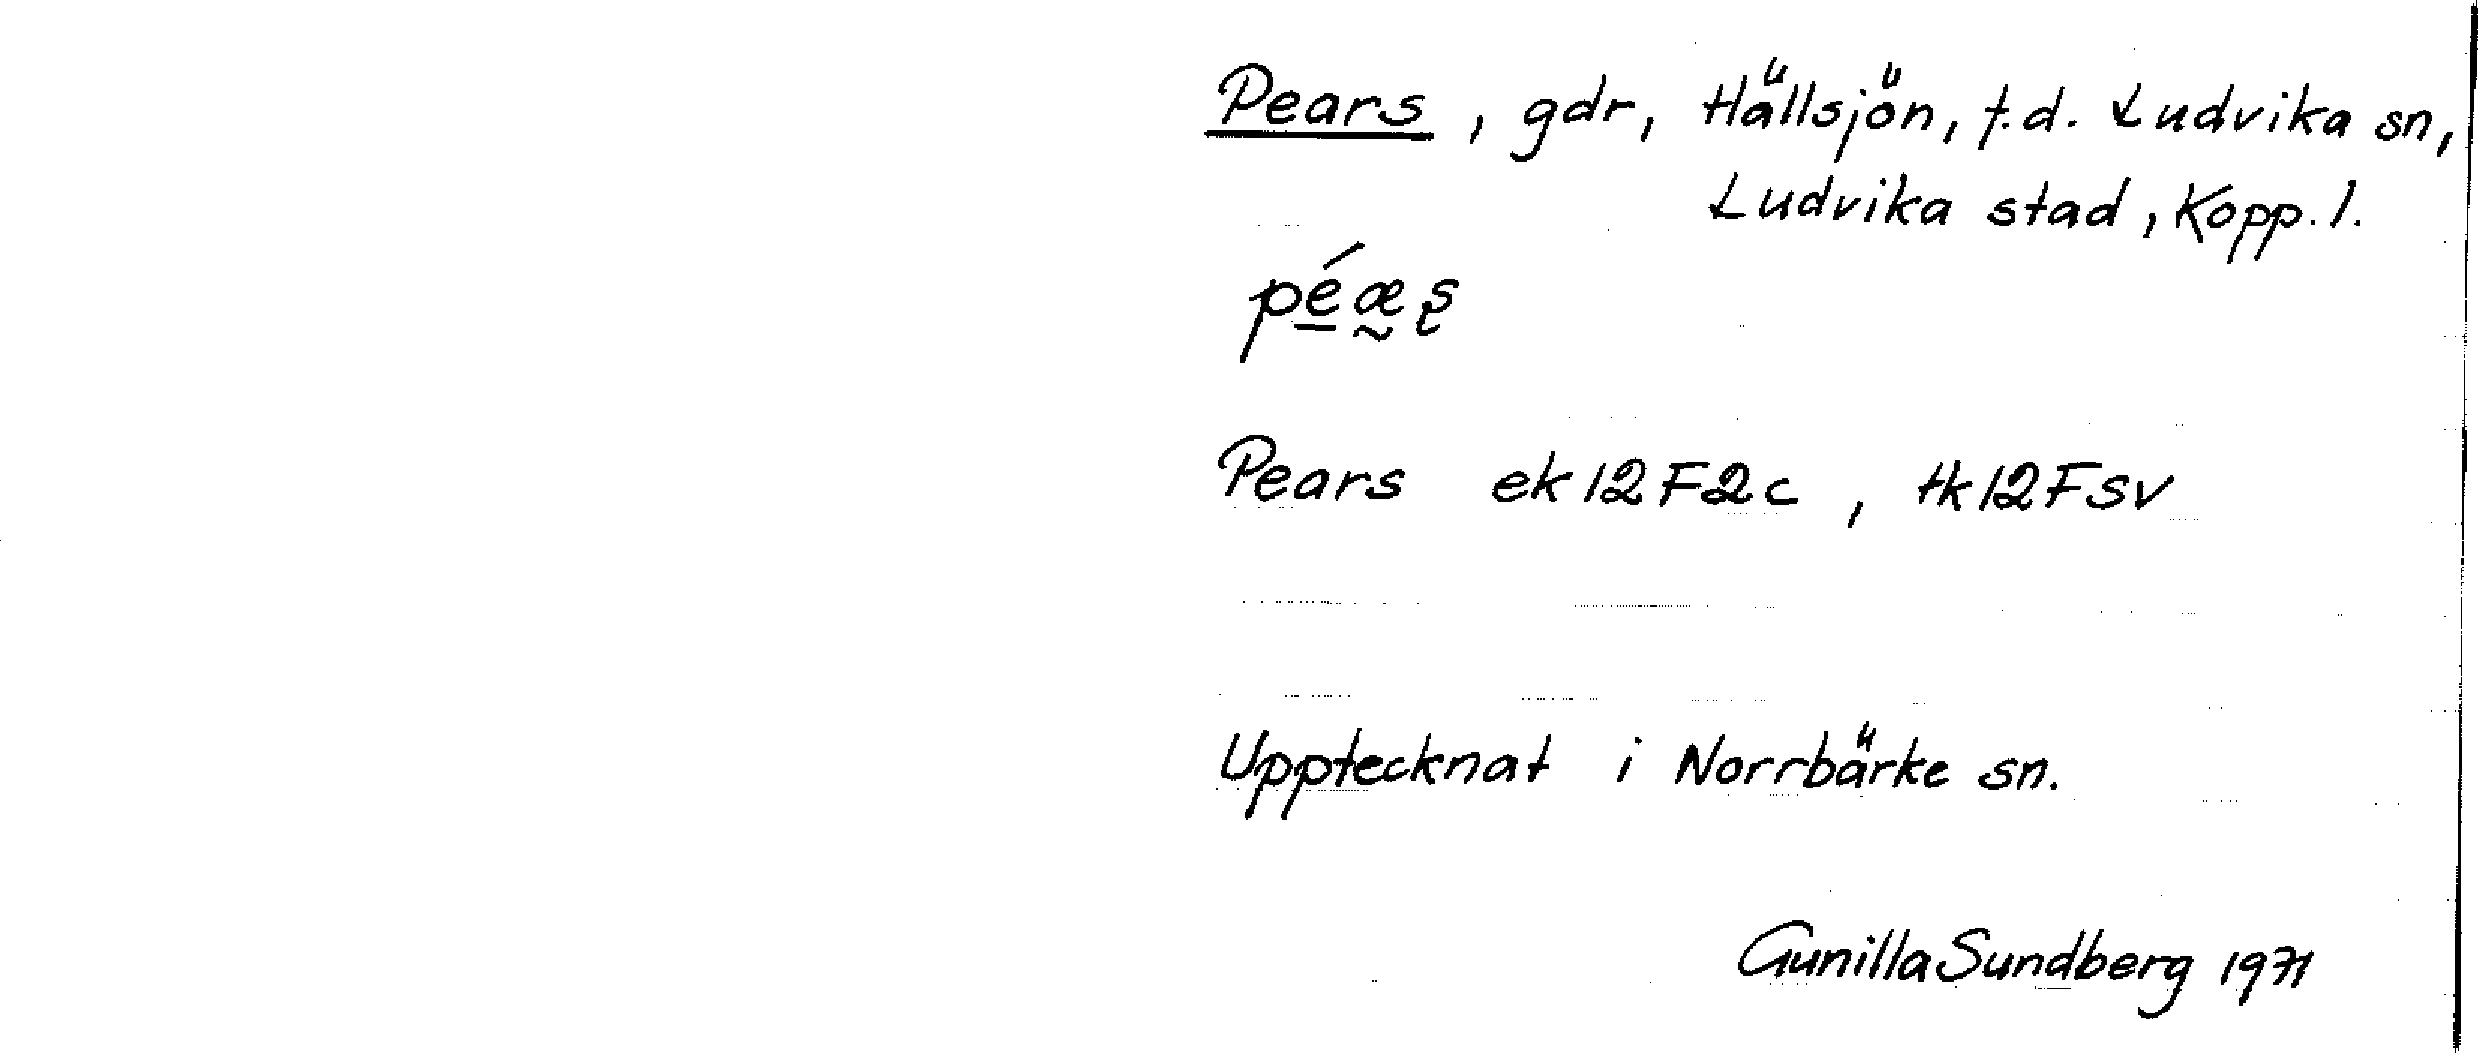 Pears, gdr, Hällsjön, f.d. Ludvika sn,
Ludvika stad, Kopp. l.
pé̱æ̰ʂ
Pears ek12F2c, tk12Fsv
Upptecknat i Norrbärke sn.
Gunilla Sundberg 1971